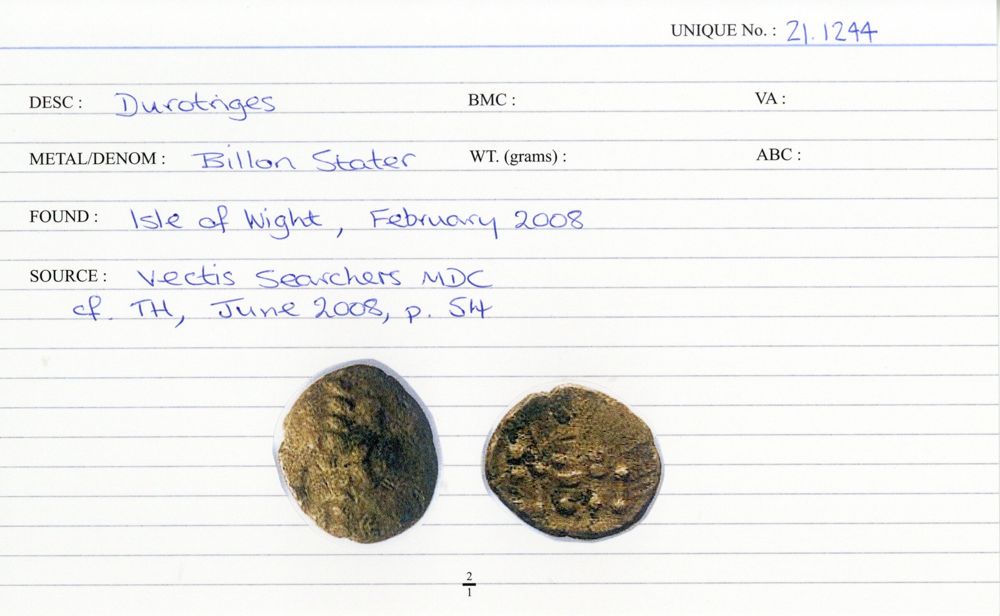 UNIQUE No. : 21.1244
DESC : Durotriges BMC : VA :
METAL/DENOM : Billon Stater WT. (grams) : ABC :
FOUND : Isle of Wight, February 2008
SOURCE : Vectis Searchers MDC
cf. TH, June 2008, p. 54
2
1